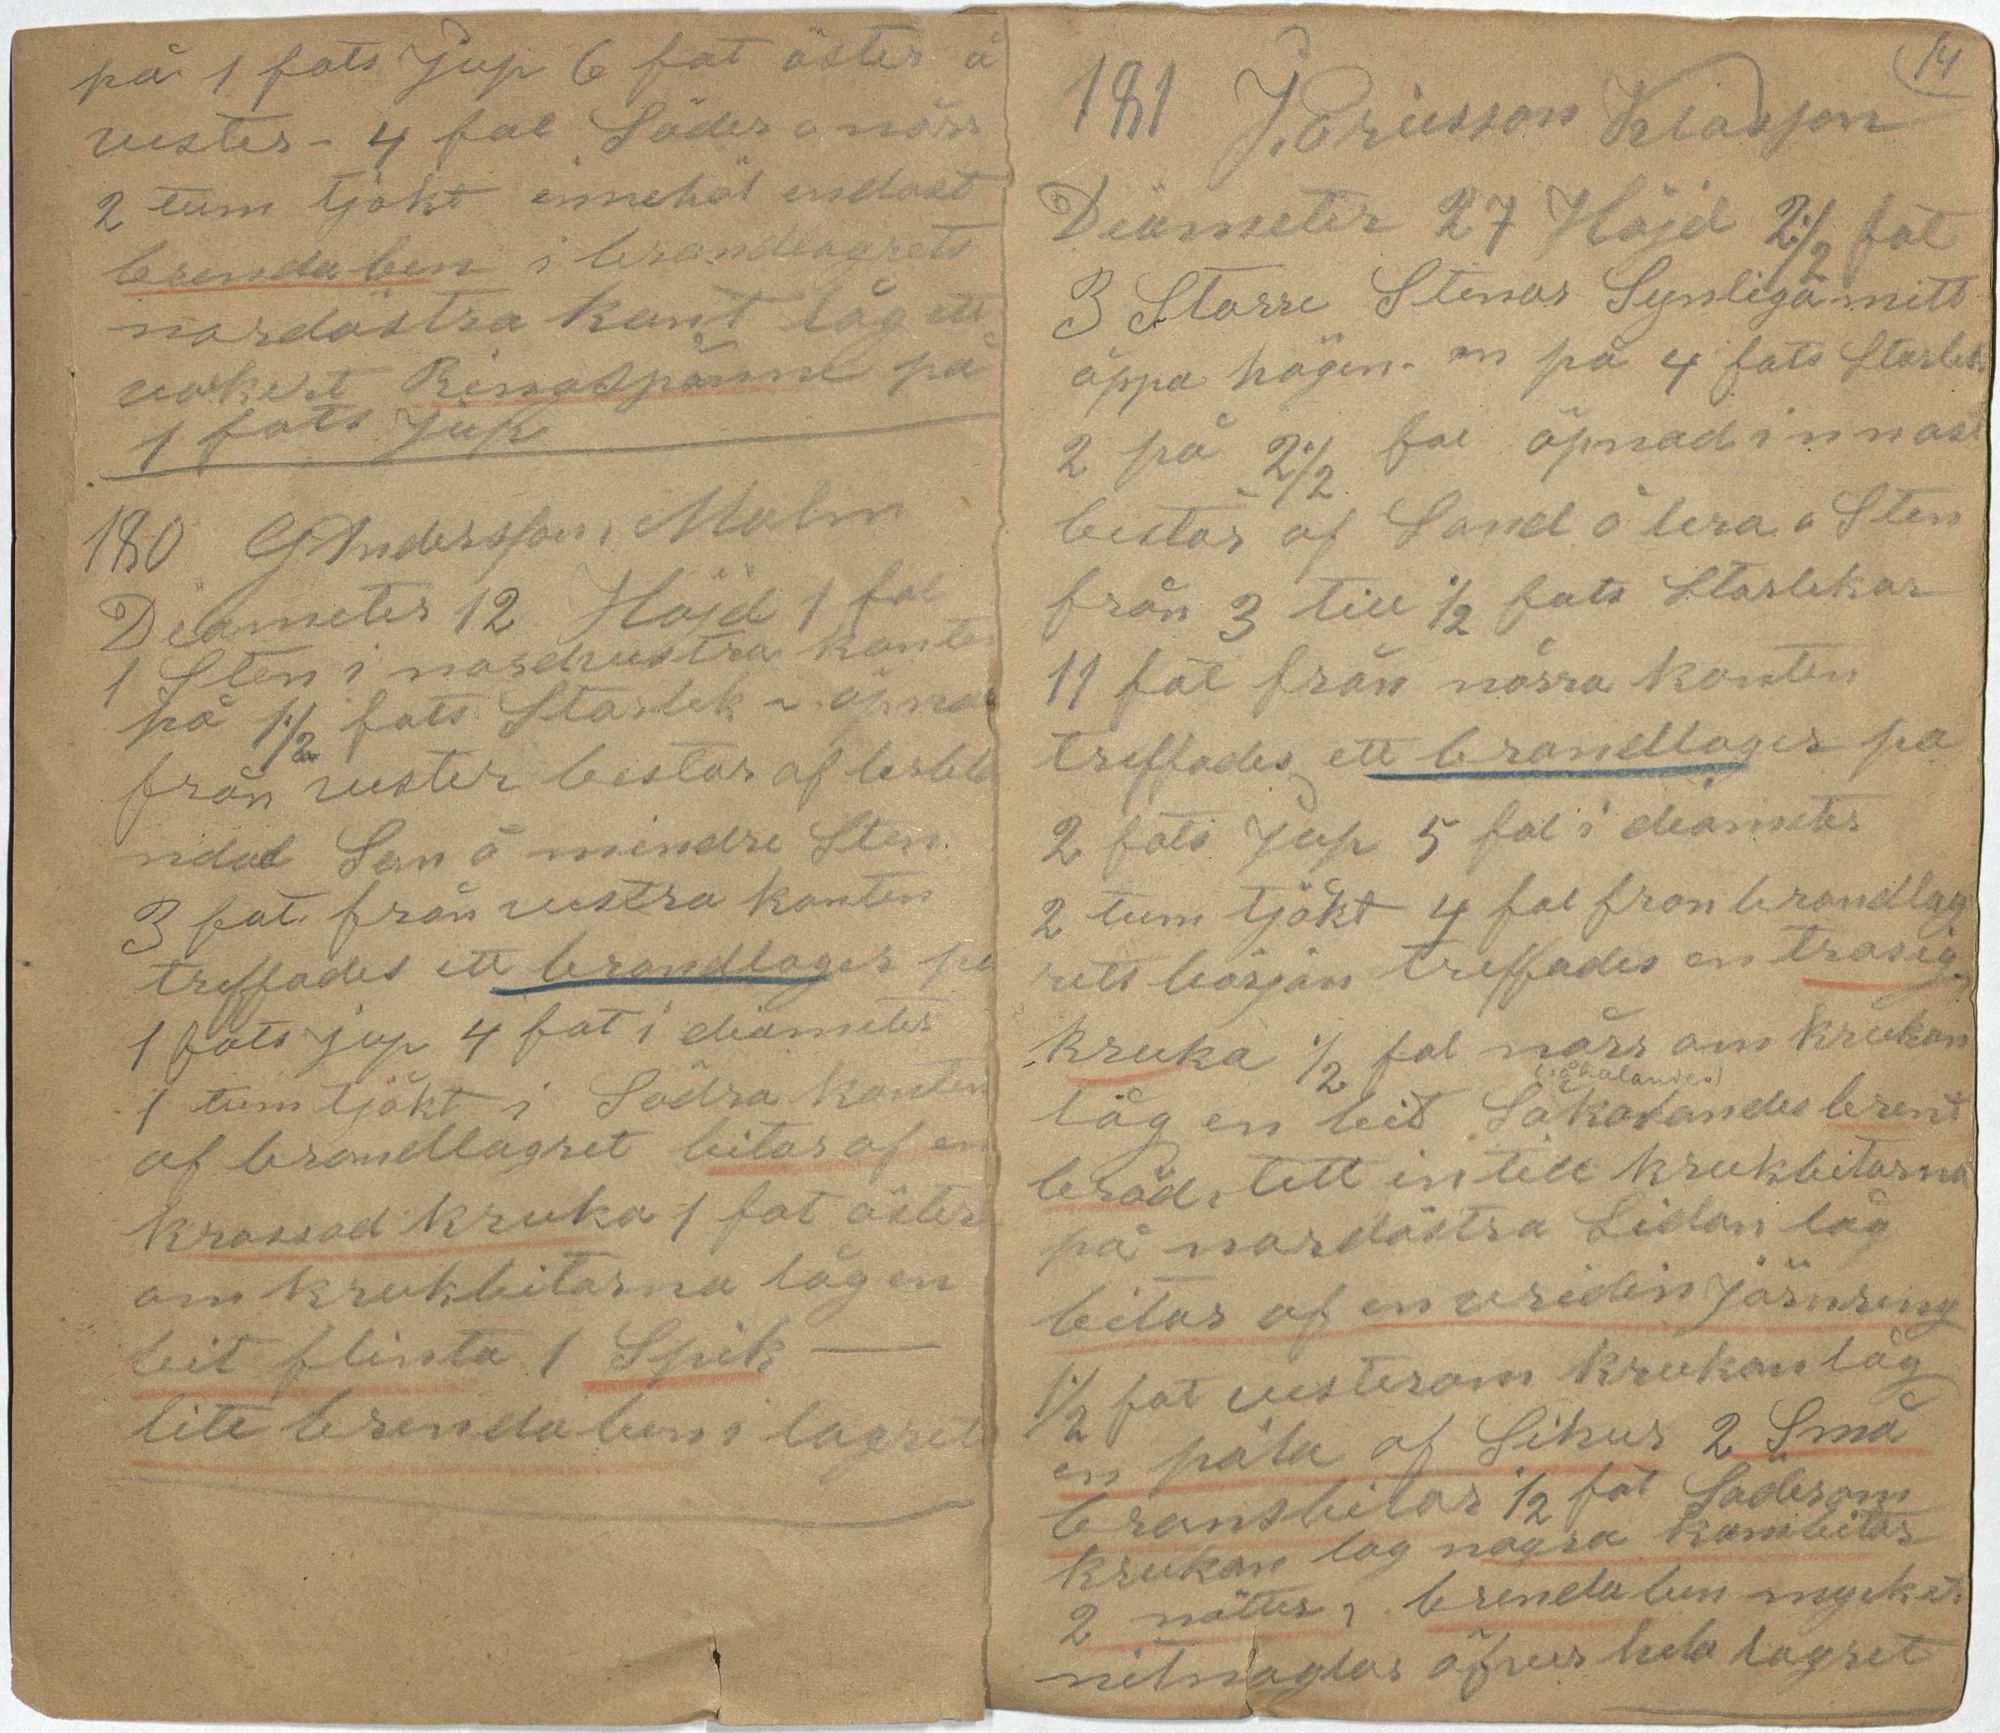 på 1 fots Jup 6 fot öster å
vester - 4 fot Söder o nårr
2 tum tjökt innehöl endast
brenda ben i brandlagrets
nordöstra kant låg ett
Ringspänne på
1 fots Jup
180 G Andersson, Malm
Diameter 12 Höjd 1 fot
1 Sten i nordvestra kanten
på 1 1/2 fots Storlek - öpnad
från vester bestor af lerbla
ndad San å mindre Sten
3 fot från vestra kanten
treffades ett brandlager på
1 fots jup 4 fot i diameter
1 tum tjökt i Södra kanten
af brandlagret bitar af en
krossad kruka 1 fot öster
om krukbitarna låg en
bit flinta 1 Spik —
lite brenda ben i lagret
14
181 J. Ericsson Klasson
Diameter 27 Höjd 2 1/2 fot
3 Storre Stenar Synliga mitt
öppa högen - en på 4 fots Storlek
2 på 2 1/2 fot öpnad innast
består af Sand å lera o Sten
från 3 till 1/2 fots Storlekar
11 fot från nårra kanten
treffades ett brandlager pa
2 fots Jup 5 fot i diameter
2 tum tjökt 4 fot fron brandlag
rets börjön treffades en trasig
kruka 1/2 fot nårr om krukan
(såkalandes)
låg en bit Såkalandes brent
bröd, tett intill krukbitarna
på nordöstra Sidan låg
bitar af en vriden järnring
1/2 fot vesterom krukan låg
en pöla af Silver 2 Små
bronsbitar 1/2 fot Söderom
krukan lag nogra kambitar
2 nötter, brenda ben myket
nitnaglar öfver hela lagret